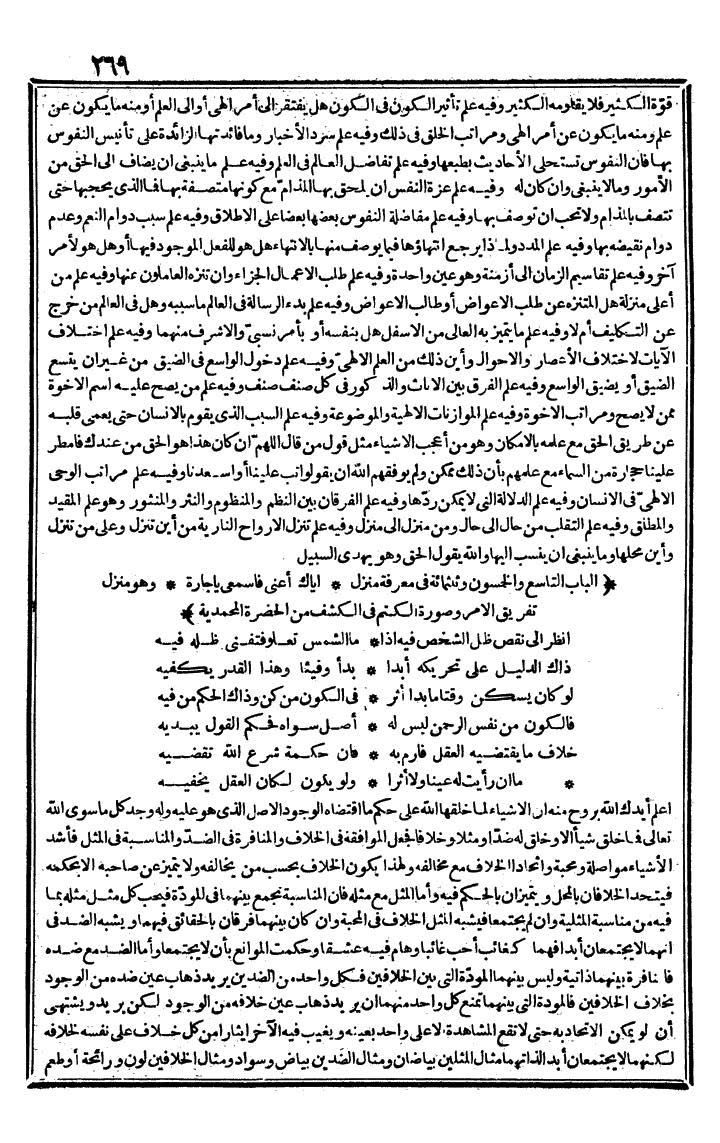 ٢٦٩
قوة الكثير فلا يقاومه الكثير وفيه علم تأثير الكون في الكون هل يفتقر إلى أمر الهي أو إلى العلم أو منه ما يكون عن
علم ومنه ما يكون عن أمر الهي ومراتب الخلق في ذلك وفيه علم سرد الأخبار وما فائدتها الزائدة على تأنيس النفوس
بها فان النفوس تستحلى الأحاديث بطبعها وفيه علم تفاضل العالم في العلم وفيه علم ما ينبغي ان يضاف الى الحق من
الأمور وما لا ينبغي وان كان له وفيه علم عزة النفس ان يلحق بها المذام مع كونها متصفة بها فما الذي يحجبها حتى
تتصف بالمذام ولا تحب ان توصف بها وفيه علم مفاضلة النفوس بعضها بعضا على الاطلاق وفيه علم سبب دوام النعم وعدم
دوام نقيضه بها وفيه علم المدد ولماذا يرجع انتهاؤها فيما يوصف منها بالانتهاء هل هو للفعل الموجود فيها أو هل هو لأمر
آخر وفيه علم تقاسيم الزمان الى أزمنة وهو عين واحدة وفيه علم طلب الاعمال الجزاء وان تنزه العاملون عنها وفيه علم من
أعلى منزلة هل المتنزه عن طلب الاعواض أو طالب الاعواض وفيه علم بدء الرسالة في العالم ما سببه وهل في العالم من خرج
عن التكليف أم لا وفيه علم ما يتميز به العالى من الاسفل هل بنفسه أو بأمر نسبيّ والاشرف منهما وفيه علم اختلاف
الآيات لاختلاف الأعصار والاحوال وأين ذلك من العلم الالهي وفيه علم دخول الواسع في الضيق من غير ان يتسع
الضيق أو يضيق الواسع وفيه علم الفرق بين الاناث والذكور في كل صنف صنف وفيه علم من يصح عليه اسم الاخوة
ممن لا يصح ومراتب الاخوة وفيه علم الموازنات الالهية والموضوعة وفيه علم السبب الذي يقوم بالانسان حتى يعمى قلبه
عن طريق الحق مع علمه بالامكان وهو من أعجب الاشياء مثل قول من قال اللهم ان كان هذا هو الحق من عندك فامطر
علينا حجارة من السماء مع علمهم بأن ذلك ممكن ولم يوفقهم الله ان يقولوا تب علينا أو اسعدنا وفيه علم مراتب الوحى
الالهي في الانسان وفيه علم الدلالة التي لا يمكن ردّها وفيه علم الفرقان بين النظم والمنظوم والنثر والمنثور وهو علم المقيد
والمطلق وفيه علم التقلب من حال الى حال ومن منزل الى منزل وفيه علم تنزل الارواح النارية من أين تنزل وعلى من تنزل
وأين محلها وما ينبغي ان ينسب اليها والله يقول الحق وهو يهدى السبيل
﴿ الباب التاسع والخمسون وثلثمائة في معرفة منزل * اياك أعنى فاسمعى ياجارة * وهو منزل
تفريق الامر وصورة الكتم في الكشف من الحضرة المحمدية ﴾
انظر الى نقص ظل الشخص فيه اذا * ما الشمس تعلو فتفنى ظله فيه
ذاك الدليل على تحريكه أبدا * بدأ وفيئا وهذا القدر يكفيه
لو كان يسكن وقتا ما بدا أثر * في الكون من كن وذاك الحكم من فيه
فالكون من نفس الرحمن ليس له * أصل سواه فحكم القول يبديه
خلاف ما يقتضيه العقل فارم به * فان حكمة شرع الله تقضيه
* ما ان رأيت له عينا ولا أثرا * ولو يكون لكان العقل يخفيه
اعلم أيدك الله بروح منه ان الاشياء لما خلقها الله على حكم ما اقتضاه الوجود الاصل الذي هو عليه وله وجد كل ما سوى الله
تعالى فما خلق شيأ الا وخلق له ضدّا ومثلا وخلافا فجعل الموافقة في الخلاف والمنافرة في الضدّ والمناسبة في المثل فأشد
الأشياء مواصلة ومحبة واتحادا الخلاف مع مخالفه ولهذا يكون الخلاف بحسب من يخالفه ولا يتميز عن صاحبه الا بحكمه
فيتحد الخلافان بالمحل ويتميزان بالحكم فيه وأما المثل مع مثله فان المناسبة تجمع بينهما في المودّة فيحب كل مثل مثله بما
فيه من مناسبة المثلية وان لم يجتمعا فيشبه المثل الخلاف في المحبة وان كان بينهما فرقان بالحقائق فيهم او يشبه الضد في
انهما لا يجتمعان أبدا فهما كغائب أحب غائبا وهام فيه عشقا وحكمت الموانع بأن لا يجتمعا وأما الضد مع ضده
فالمنافرة بينهما ذاتية وليس بينهما المودّة التي بين الخلافين فكل واحد من الضدين يريد ذهاب عين ضده من الوجود
بخلاف الخلافين فالمودة التي بينهما تمنع كل واحد منهما ان يريد ذهاب عين خلافه من الوجود لكن يريد ويشتهى
أن لو يمكن الاتحاد به حتى لا تقع المشاهدة الا على واحد بعينه ويغيب فيه الآخر ايثارا من كل خلاف على نفسه لخلافه
لكنهما لا يجتمعان أبدا لذاتهما مثال المثلين بياضان ومثال الضدين بياض وسواد ومثال الخلافين لون ورائحة أو طعم